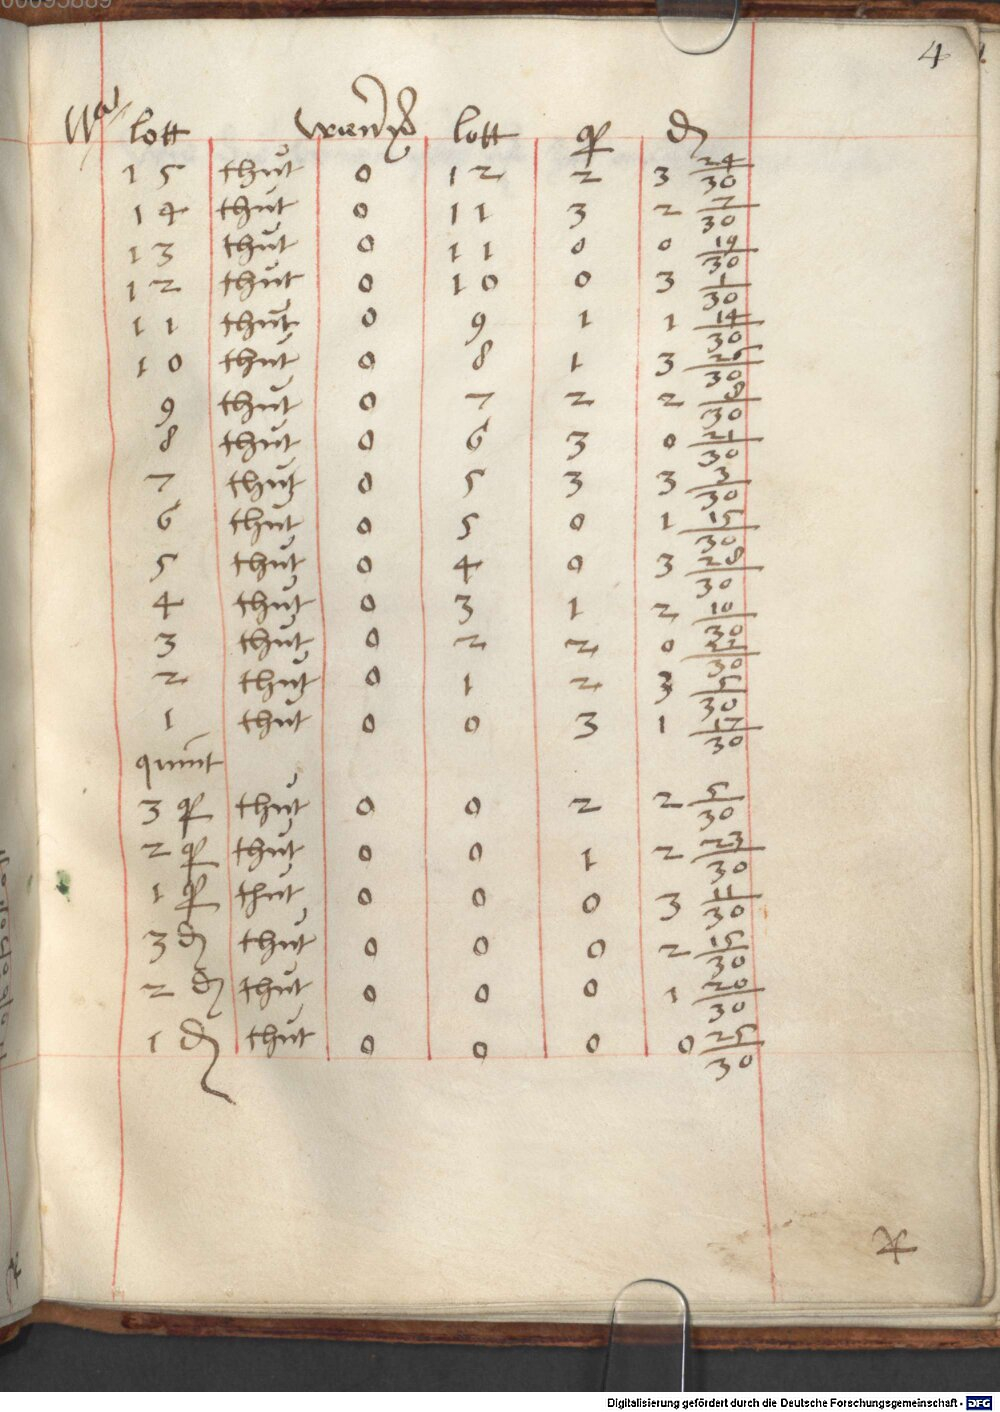 00095889
4
lott wien lott qͥ ₰
15 thut 0 12 2 3 24/30
14 thut 0 11 3 2 7/30
13 thut 0 11 0 0 19/30
12 thut 0 10 0 3 1/30
11 thut 0 9 1 1 14/30
10 thut 0 8 1 3 26/30
9 thut 0 7 2 2 8/30
8 thut 0 6 3 0 21/30
7 thut 0 5 3 3 3/30
6 thut 0 5 0 1 15/30
5 thut 0 4 0 3 28/30
4 thut 0 3 1 2 10/30
3 thut 0 2 2 0 22/30
2 thut 0 1 2 3 5/30
1 thut 0 0 3 1 17/30
quint
3 q thut 0 0 2 2 5/30
2 q thut 0 0 1 2 23/30
1 q thut 0 0 0 3 11/30
3 ₰ thut 0 0 0 2 15/30
2 ₰ thut 0 0 0 1 20/30
1 ₰ thut 0 0 0 0 25/30
Digitalisierung gefördert durch die Deutsche Forschungsgemeinschaft - DFG